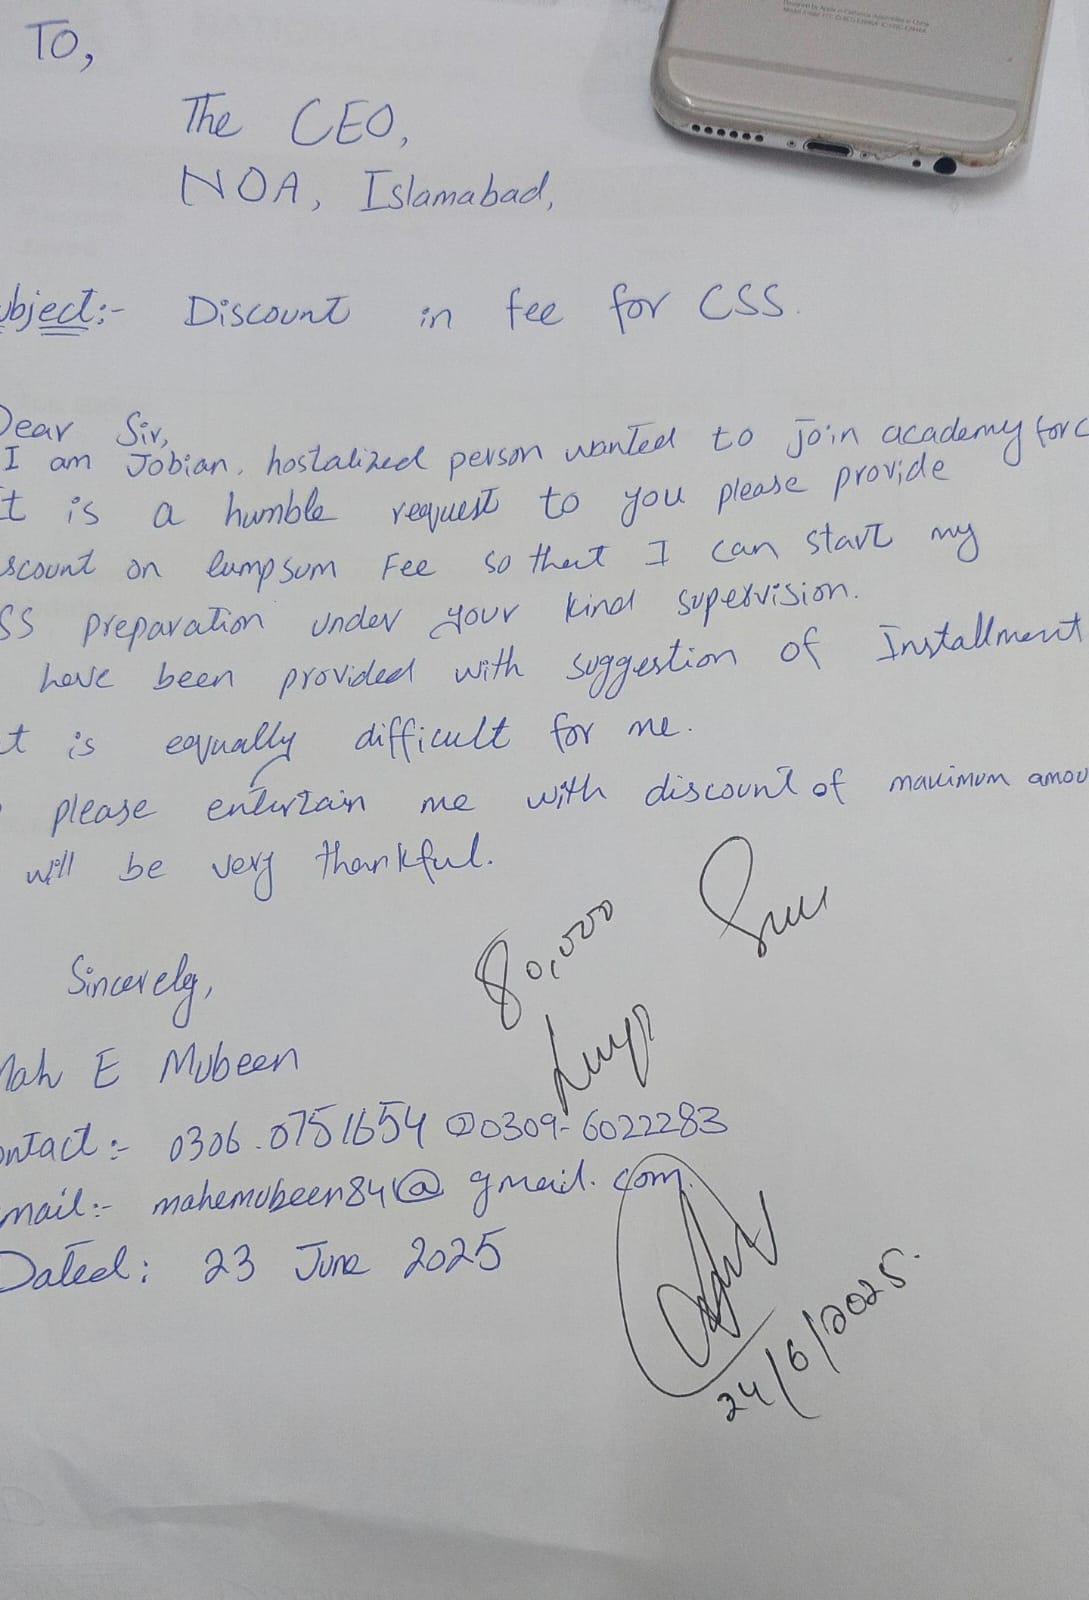 Designed by Apple in California Assembled in China
TO,
The CEO,
NOA, Islamabad,
ubject:- Discount in fee for CSS.
Dear Sir,
I am Jobian, hostalized person wanted to join academy for C
t is a humble request to you please provide
scount on lumpsum Fee so that I can start my
SS preparation under your kind supervision.
have been provided with suggestion of Installment
t is equally difficult for me.
please entertain me with discount of maximum amou
will be very thankful.
80,000
Sincerely,
Mah E Mubeen
ontact :- 0306.0751654 @0309-6022283
mail:- mahemubeen84@gmail.com.
Dated: 23 June 2025
24/6/2025.